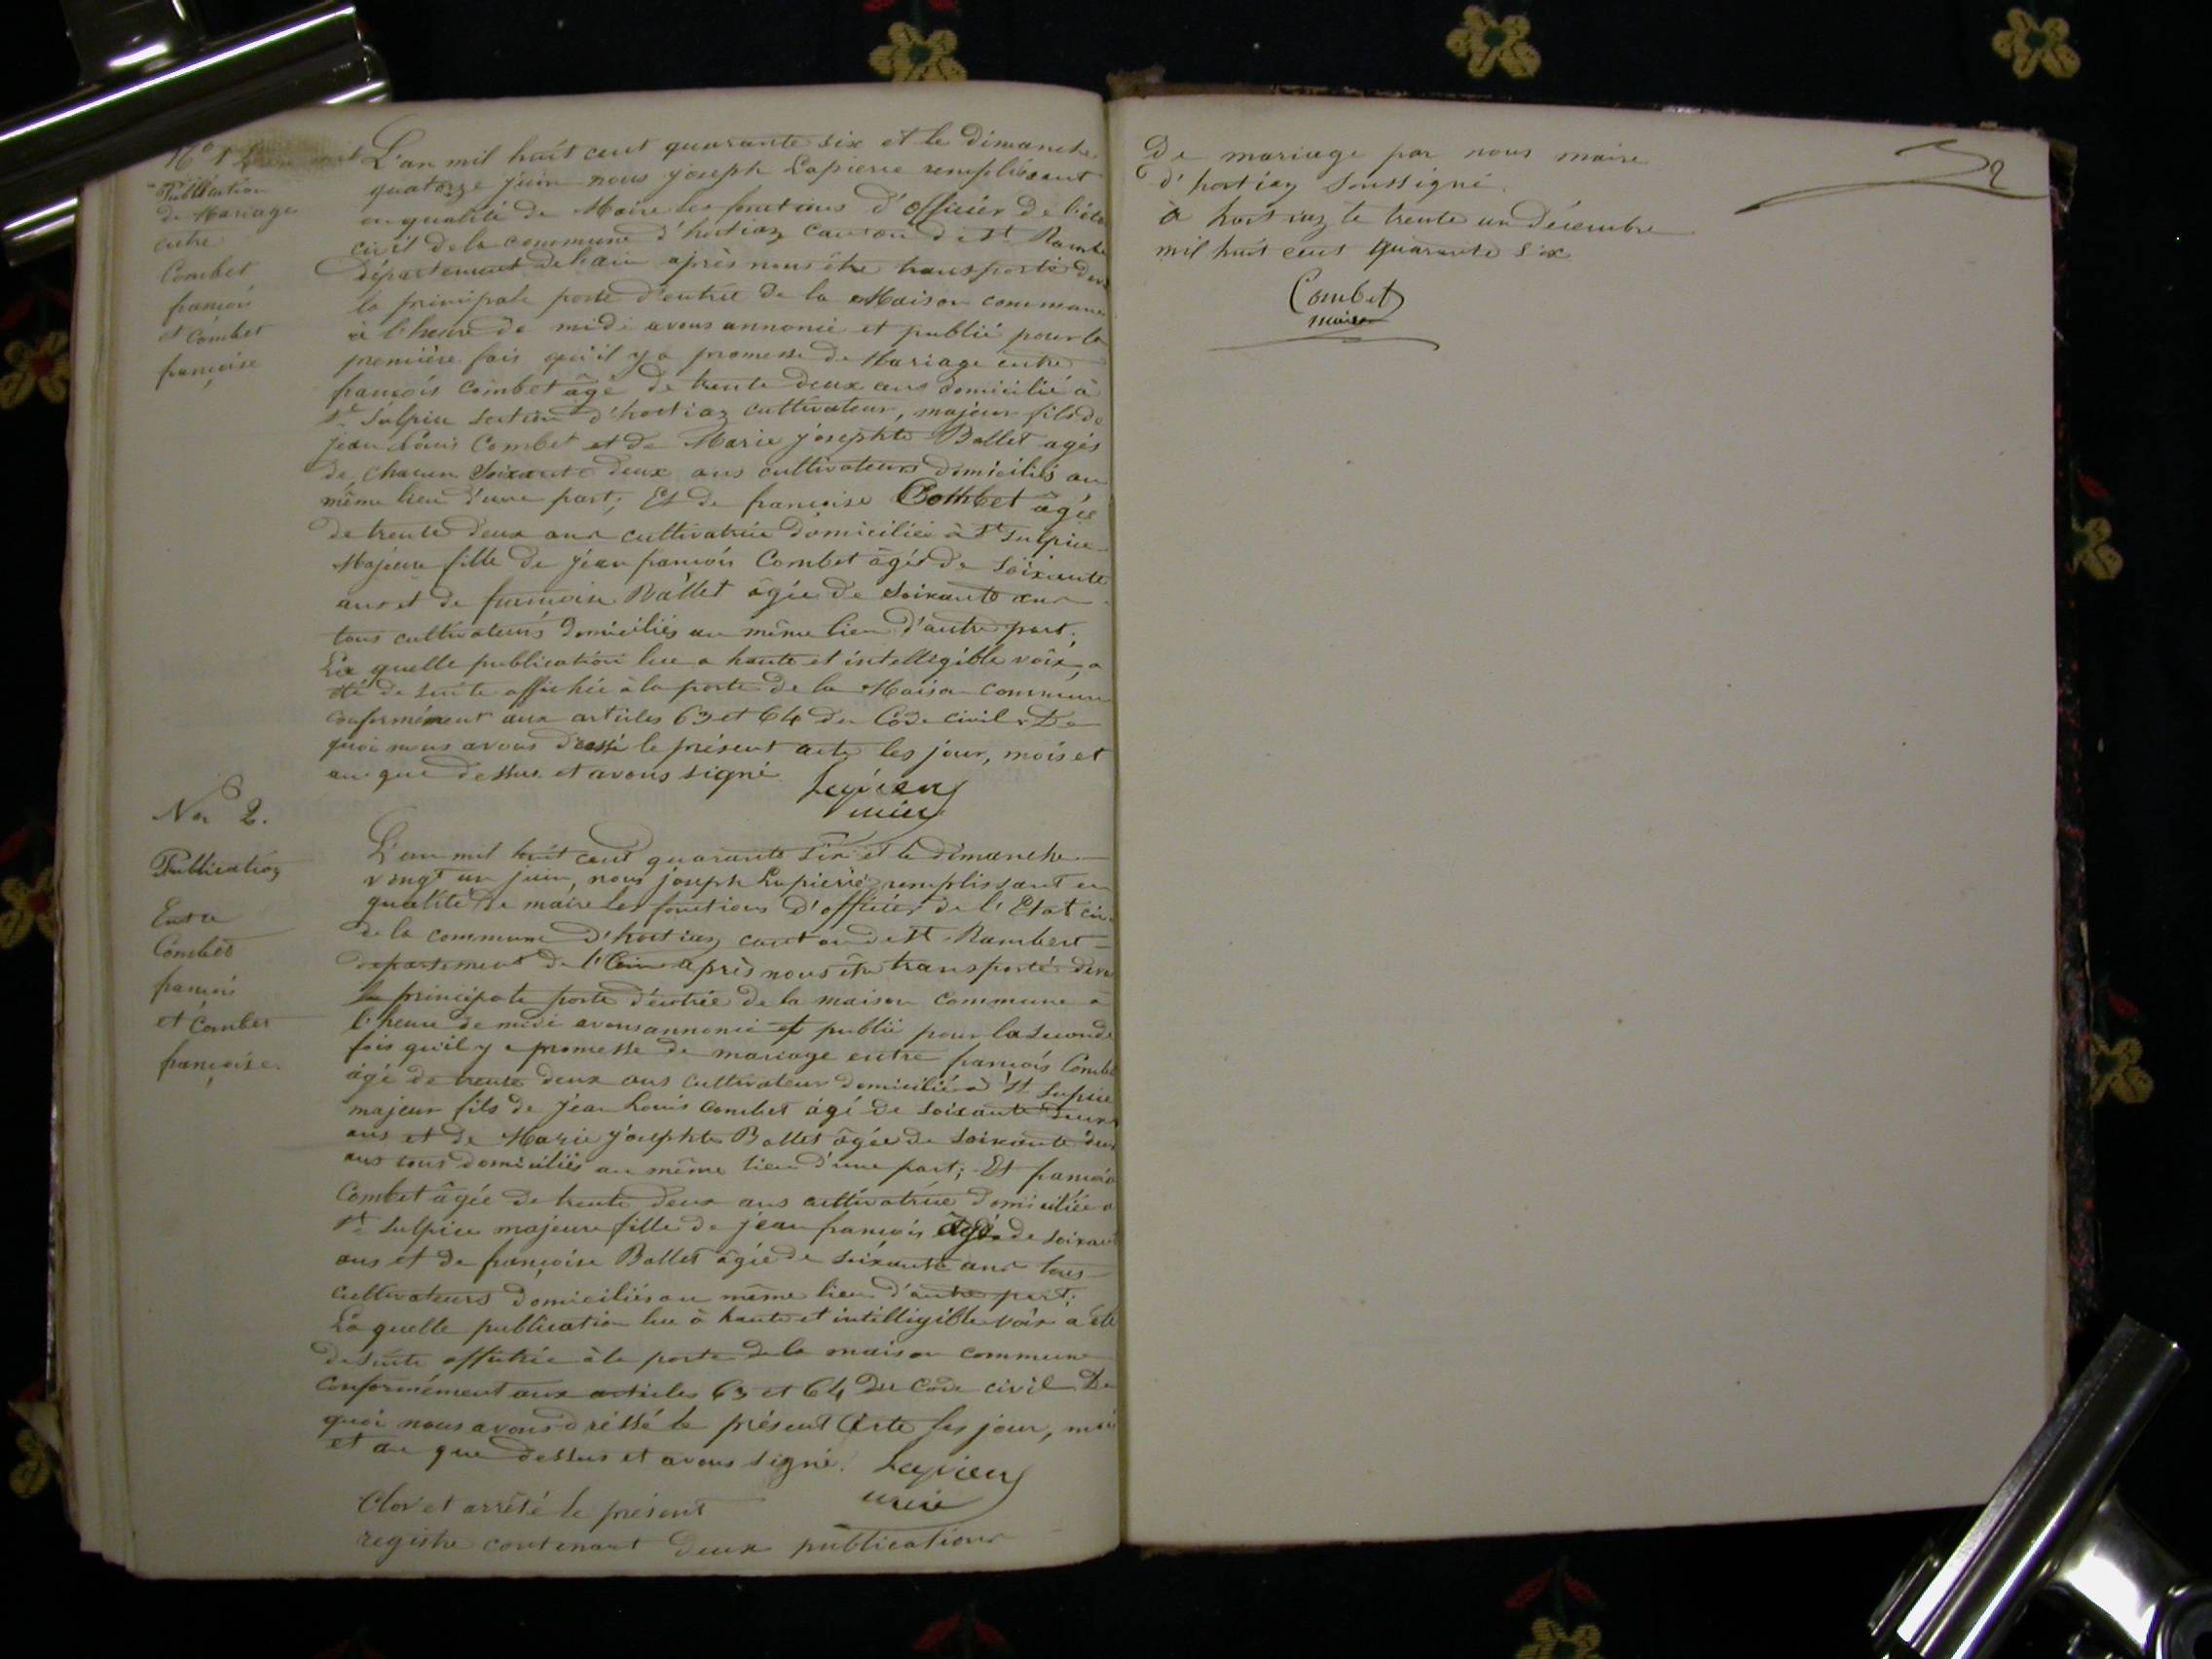 No 1
Publication
de Mariage
entre
Combet
françois
et Combet
françoise
L'an mil huit cent quarante six et le Dimanche
quatorze juin nous joseph Lapierre remplissant
en qualité de Maire les fonctions d'Officier de l'état
civil de la commune d'hostiaz Canton de St Rambert
Département de l'ain après nous être transporté devt
la principale porte d'entrée de la Maison commune
à l'heure de midi avons annoncé et publié pour la
première fois qu'il y a promesse de Mariage entre
françois Combet âgé de trente deux ans domicilié à
St Sulpice section d'hostiaz cultivateur, majeur fils de
jean Louis Combet et de Marie josephte Ballet agés
de chacun soixante deux ans cultivateurs domiciliés au
même lieu d'une part; Et de françoise Combet âgée
de trente deux ans cultivatrice domiciliée à St Sulpice
Majeure fille de jean françois Combet âgés de soixante
ans et de françoise Ballet âgée de soixante ans
tous cultivateurs domiciliés au même lieu d'autre part;
La quelle publication lue a haute et intelligible voix, a
été de suite affichée à la porte de la Maison commune
conformément aux articles 63 et 64 du Code civil. De
quoi nous avons dressé le présent acte les jour, mois et
an que dessus et avons signé
Lapierre
maire
No 2.
Publication
Entre
Combet
françois
et Combet
françoise.
L'an mil huit cent quarante six et le dimanche
vingt un juin, nous joseph Lapierre remplissant en
qualité de maire les fonctions d'officier de l'Etat civ
de la commune d'hostiaz canton de St Rambert
département de l'Ain après nous être transporté devt
la principale porte d'entrée de la maison commune à
l'heure de midi avons annoncé et publié pour la seconde
fois qu'il y a promesse de mariage entre françois Combet
âgé de trente deux ans cultivateur domicilié à St Sulpice
majeur fils de jean Louis Combet âgé de soixante deux
ans et de Marie josephte Ballet âgée de soixante deux
ans tous domiciliés au même lieu d'une part; Et françoise
Combet âgée de trente deux ans cultivatrice domiciliée à
St Sulpice majeure fille de jean françois âgé de soixante
ans et de françoise Ballet âgée de soixante ans tous
cultivateurs domiciliés au même lieu d'autre part;
La quelle publication lue à haute et intelligible voix a été
de suite affichée à la porte de la maison commune
conformément aux articles 63 et 64 du Code civil De
quoi nous avons dréssé le présent Acte les jour, mois
et an que dessus et avons signé.
Lapierre
maire
Clos et arrêté le présent
registre contenant deux publications
De mariage par nous maire
d'hostiaz soussigné.
à hostiaz le trente un Décembre
mil huit cent quarante six
Combet
maire